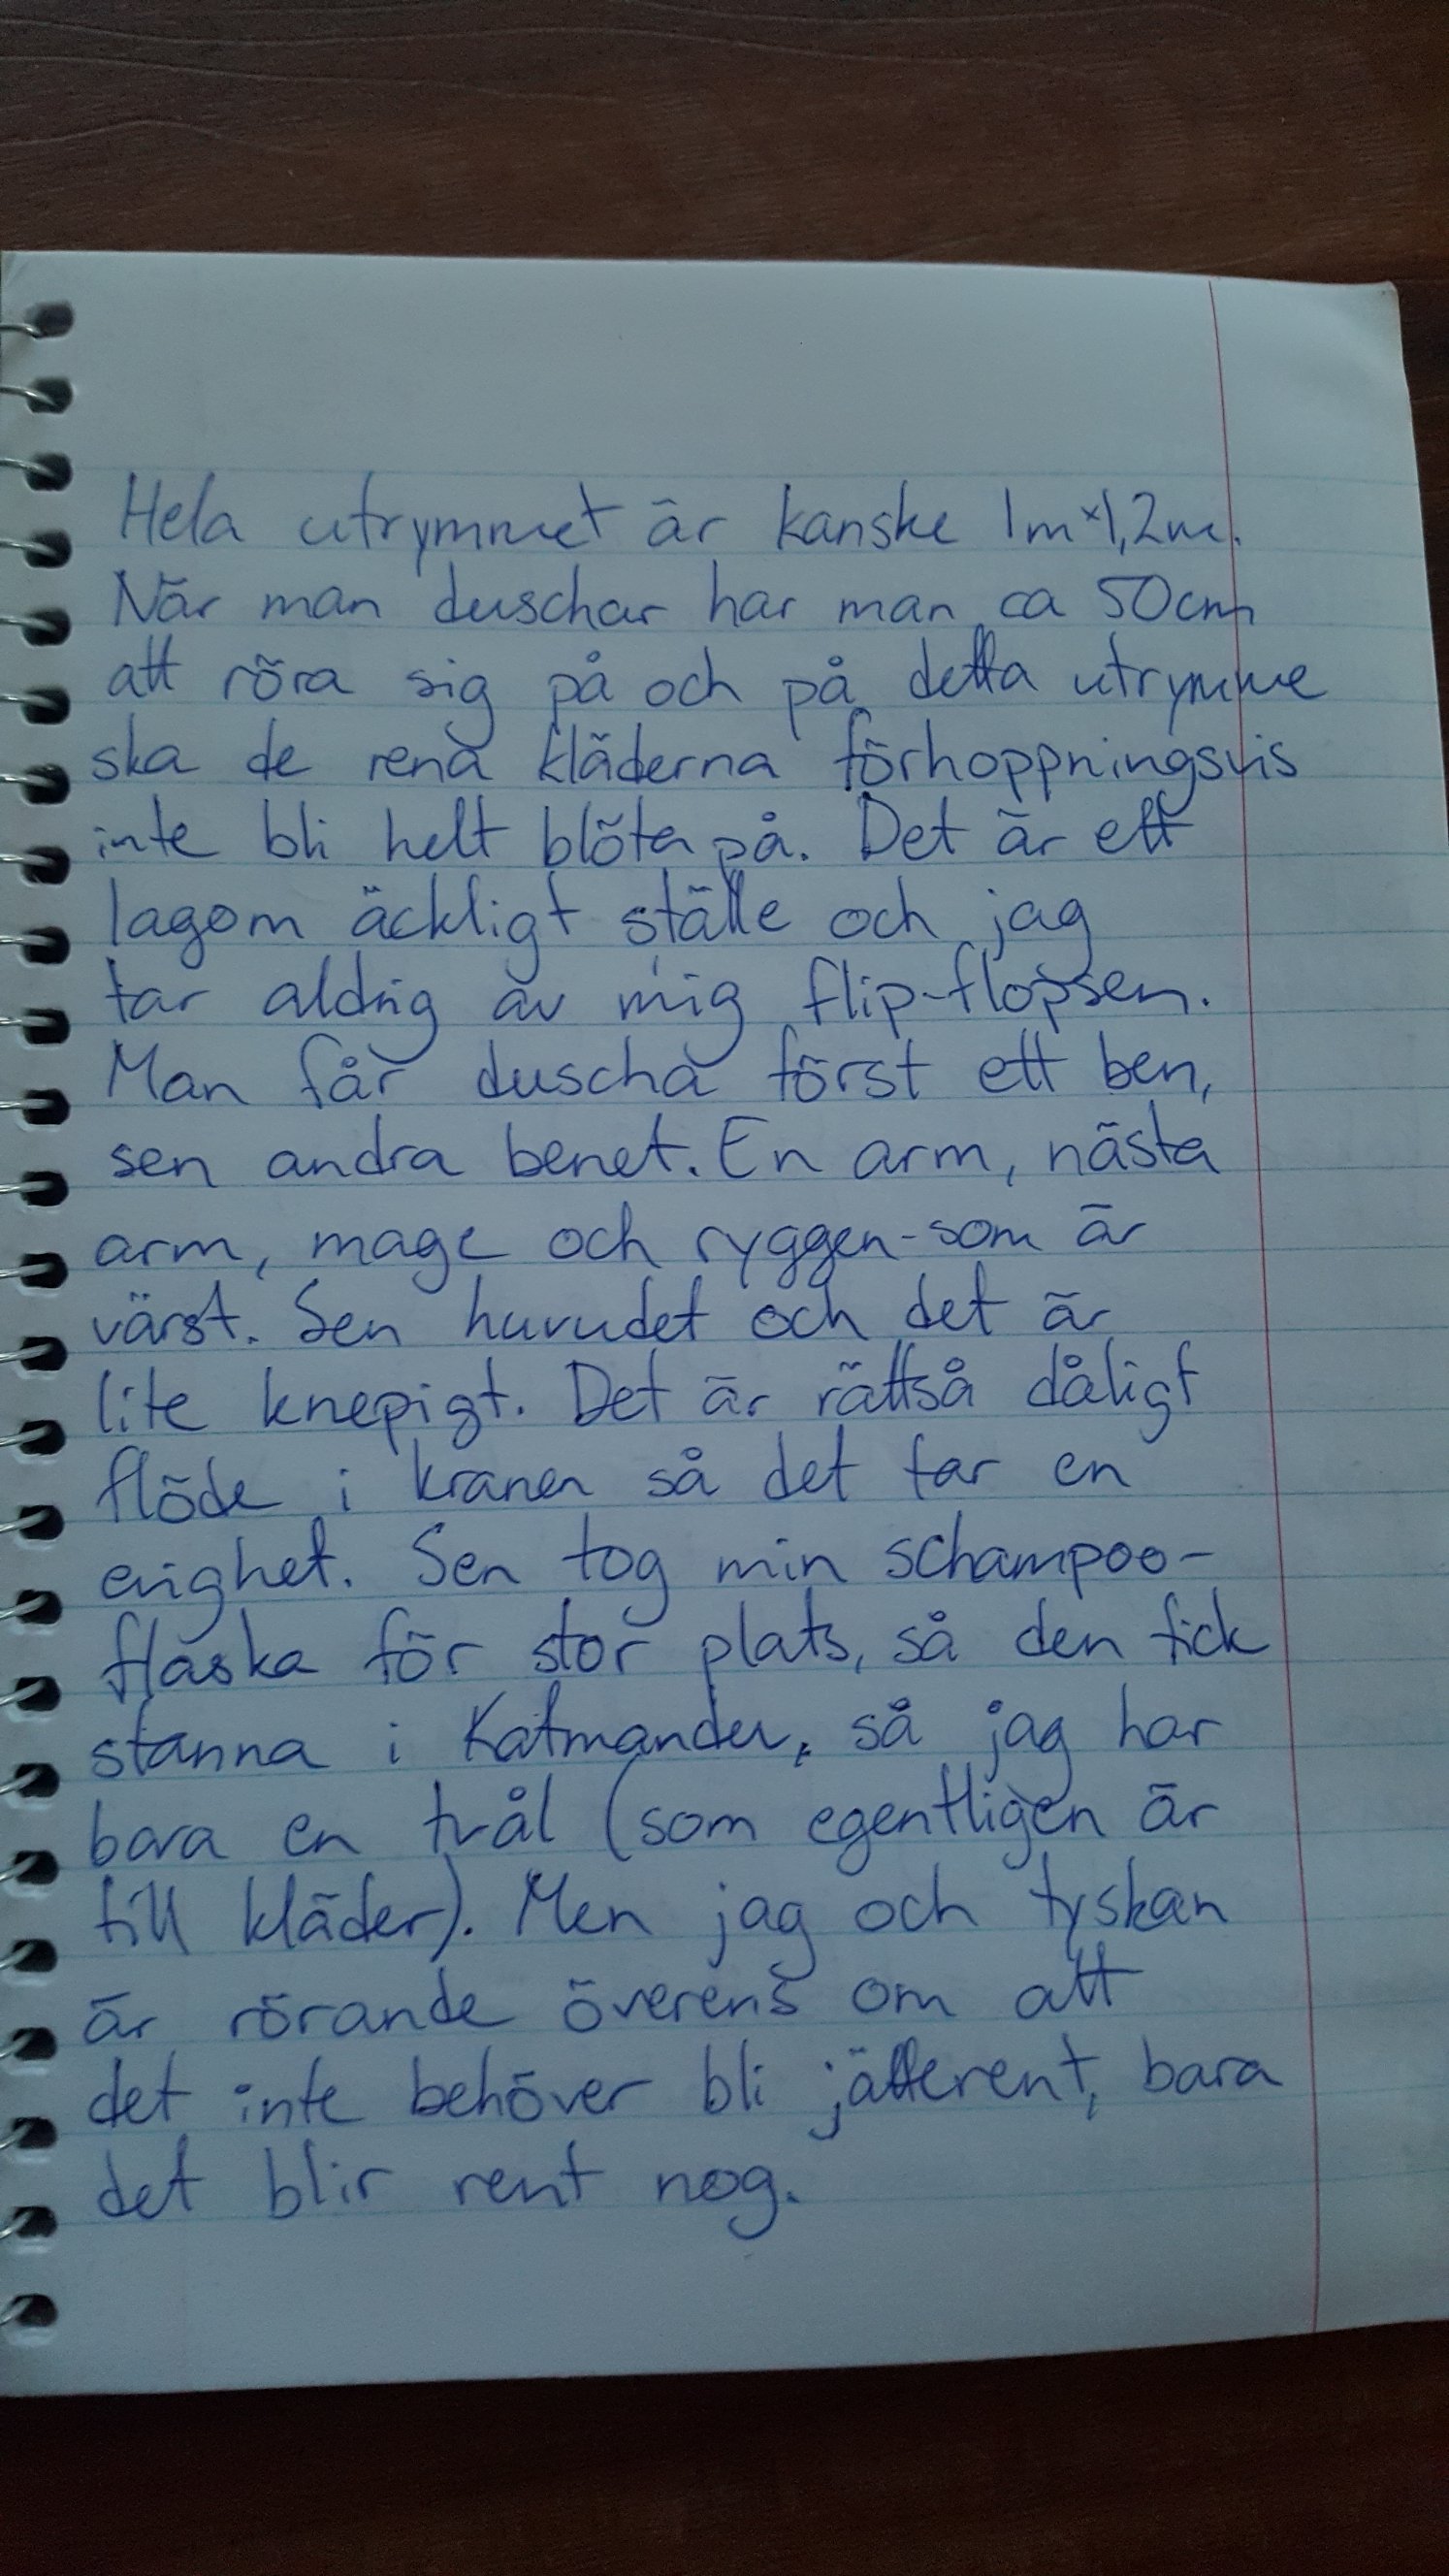 Hela utrymmet är kanske 1m×1,2m.
När man duschar har man ca 50cm
att röra sig på och på detta utrymme
ska de rena kläderna förhoppningsvis
inte bli helt blöta på. Det är ett
lagom äckligt ställe och jag
tar aldrig av mig flip-flopsen.
Man får duscha först ett ben,
sen andra benet. En arm, nästa
arm, mage och ryggen - som är
värst. Sen huvudet och det är
lite knepigt. Det är rättså dåligt
flöde i kranen så det tar en
evighet. Sen tog min schampoo-
flaska för stor plats, så den fick
stanna i Katmandu, så jag har
bara en tvål (som egentligen är
till kläder). Men jag och tyskan
är rörande överens om att
det inte behöver bli jätterent, bara
det blir rent nog.